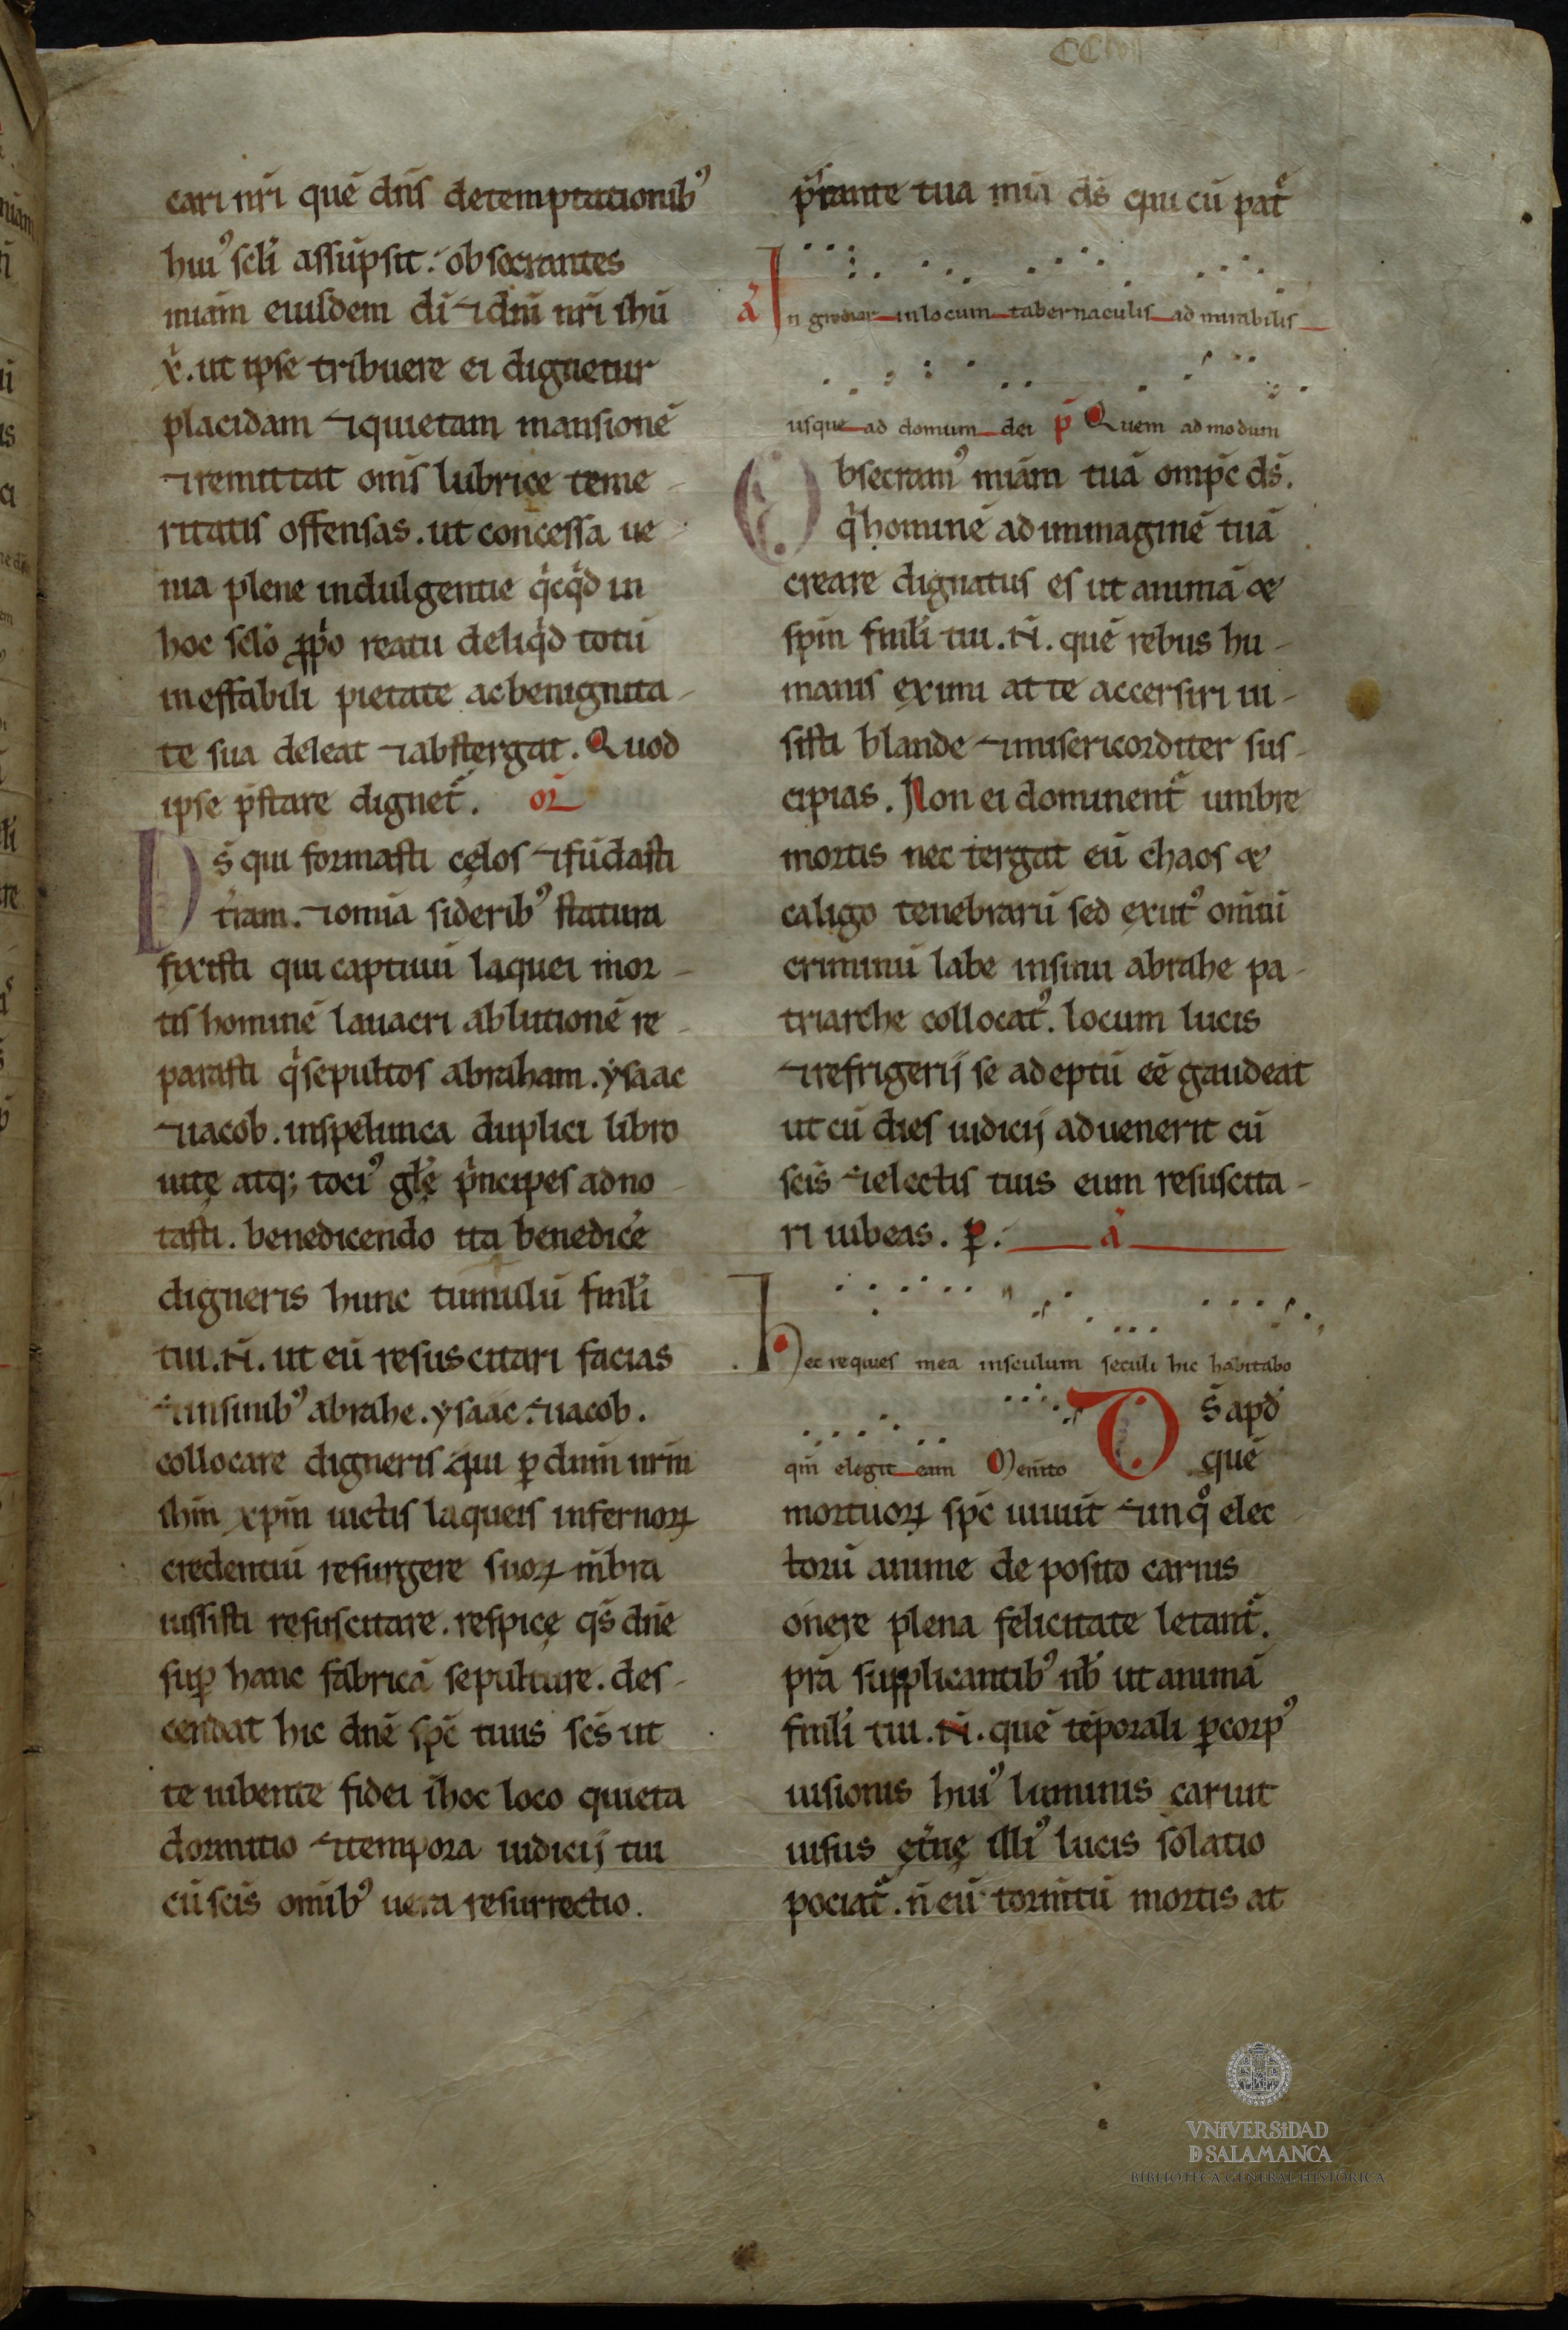 CC
cari nr̄i quē dn̄s detemptationibꝰ
huiꝰ scl̄i assūpsit. obsecrantes
miam̄ eiusdem dī ⁊dn̄i nr̄i ihū
x̄. ut ipse tribuere ei dignetur
placidam ⁊quietam mansionē
⁊remittat om̄s lubrice teme-
ritatis offensas. ut concessa ue-
nia plene indulgentie qͥcqͥd in
hoc sclō ꝓpͥo reatu deliqͥd totū
ineffabili pietate acbenignita-
te sua deleat ⁊abstergat. Quod
ipse p̄stare dignet᷑. or̄
Ds̄ qui formasti cęlos ⁊fūdasti
tr̄am. ⁊omīa sideribꝰ statura
fixisti qui captiuū laquei mor-
tis hominē lauacri ablutionē re-
parasti qͥsepultos abraham. ysaac
⁊iacob. inspelunca duplici libro
uitę atqꝫ tociꝰ gl̄ę pͥncipes adno-
tasti. benedicendo ita benedicēe
digneris hunc tumulū famłi
tui. N̄. ut eū resuscitari facias
⁊insinibꝰ abrahe. ysaac. ⁊iacob.
collocare digneris qui ꝑ dum̄ nrm̄
ihm̄ xp̄m uictis laqueis infernoꝝ
credentiū resurgere suoꝝ mb̄ra
iussisti resuscitare. respicę qs̄ dn̄e
suꝑ hanc fabricā sepulture. des-
cendat hic dn̄e sp̄c tuus sc̄s ut
te iubente fidei īhoc loco quieta
dormitio ⁊tempora iudicij tui
cūscis̄ omībꝰ uera resurrectio.
p̄stante tua mīa ds̄ qui cū pat᷑
ā In grediar inlocum tabernaculis ad mirabilis
usque ad domum dei p̄ Quem ad modum
Obsecramꝰ miam̄ tuā omp̄c ds̄.
qͥhominē ad immaginē tuā
creare dignatus es ut animā &
sp̄m famłi tui. N̄. quē rebus hu-
manis eximi at te accersiri iu-
sisti blande ⁊misericorditer sus-
cipias. Non ei dominent᷑ umbre
mortis nec tergat eū chaos &
caligo tenebrarū sed exutꝰ omīū
criminū labe insinu abrahe pa-
triarche collocatꝰ. locum lucis
⁊refrigerij se adeptū eē gaudeat
ut cū dies iudicij aduenerit cū
scis̄ ⁊electis tuis eum resuscita-
ri iubeas. ꝑ. ā
Hec requies mea insculum seculi hic habitabo
qm̄ elegit eam Mem̄to
Ds̄ apd̄
quē
mortuoꝝ sp̄c uiuūt ⁊inqͦ elec-
torū anime de posito carnis
onere plena felicitate letant᷑.
pr̄a supplicantibꝰ nb̄ ut animā
famłi tui. N̄. quē tēporali ꝑcorpꝰ
uisionis huiꝰ luminis caruit
uisus ęt̄nę illiꝰ lucis solatio
pociat᷑. n̄ eū tormt̄ū mortis at
VNiVERSiDAD
D SALAMANCA
BIBLIOTECA GENERAL HISTÓRICA